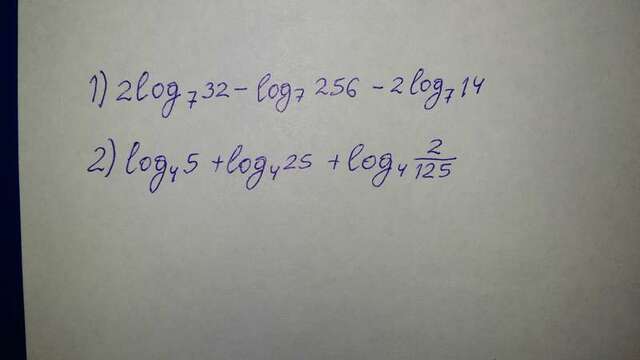 1) 2log₇32 - log₇ 256 - 2log₇14
2) log₄5 + log₄25 + log₄ 2/125